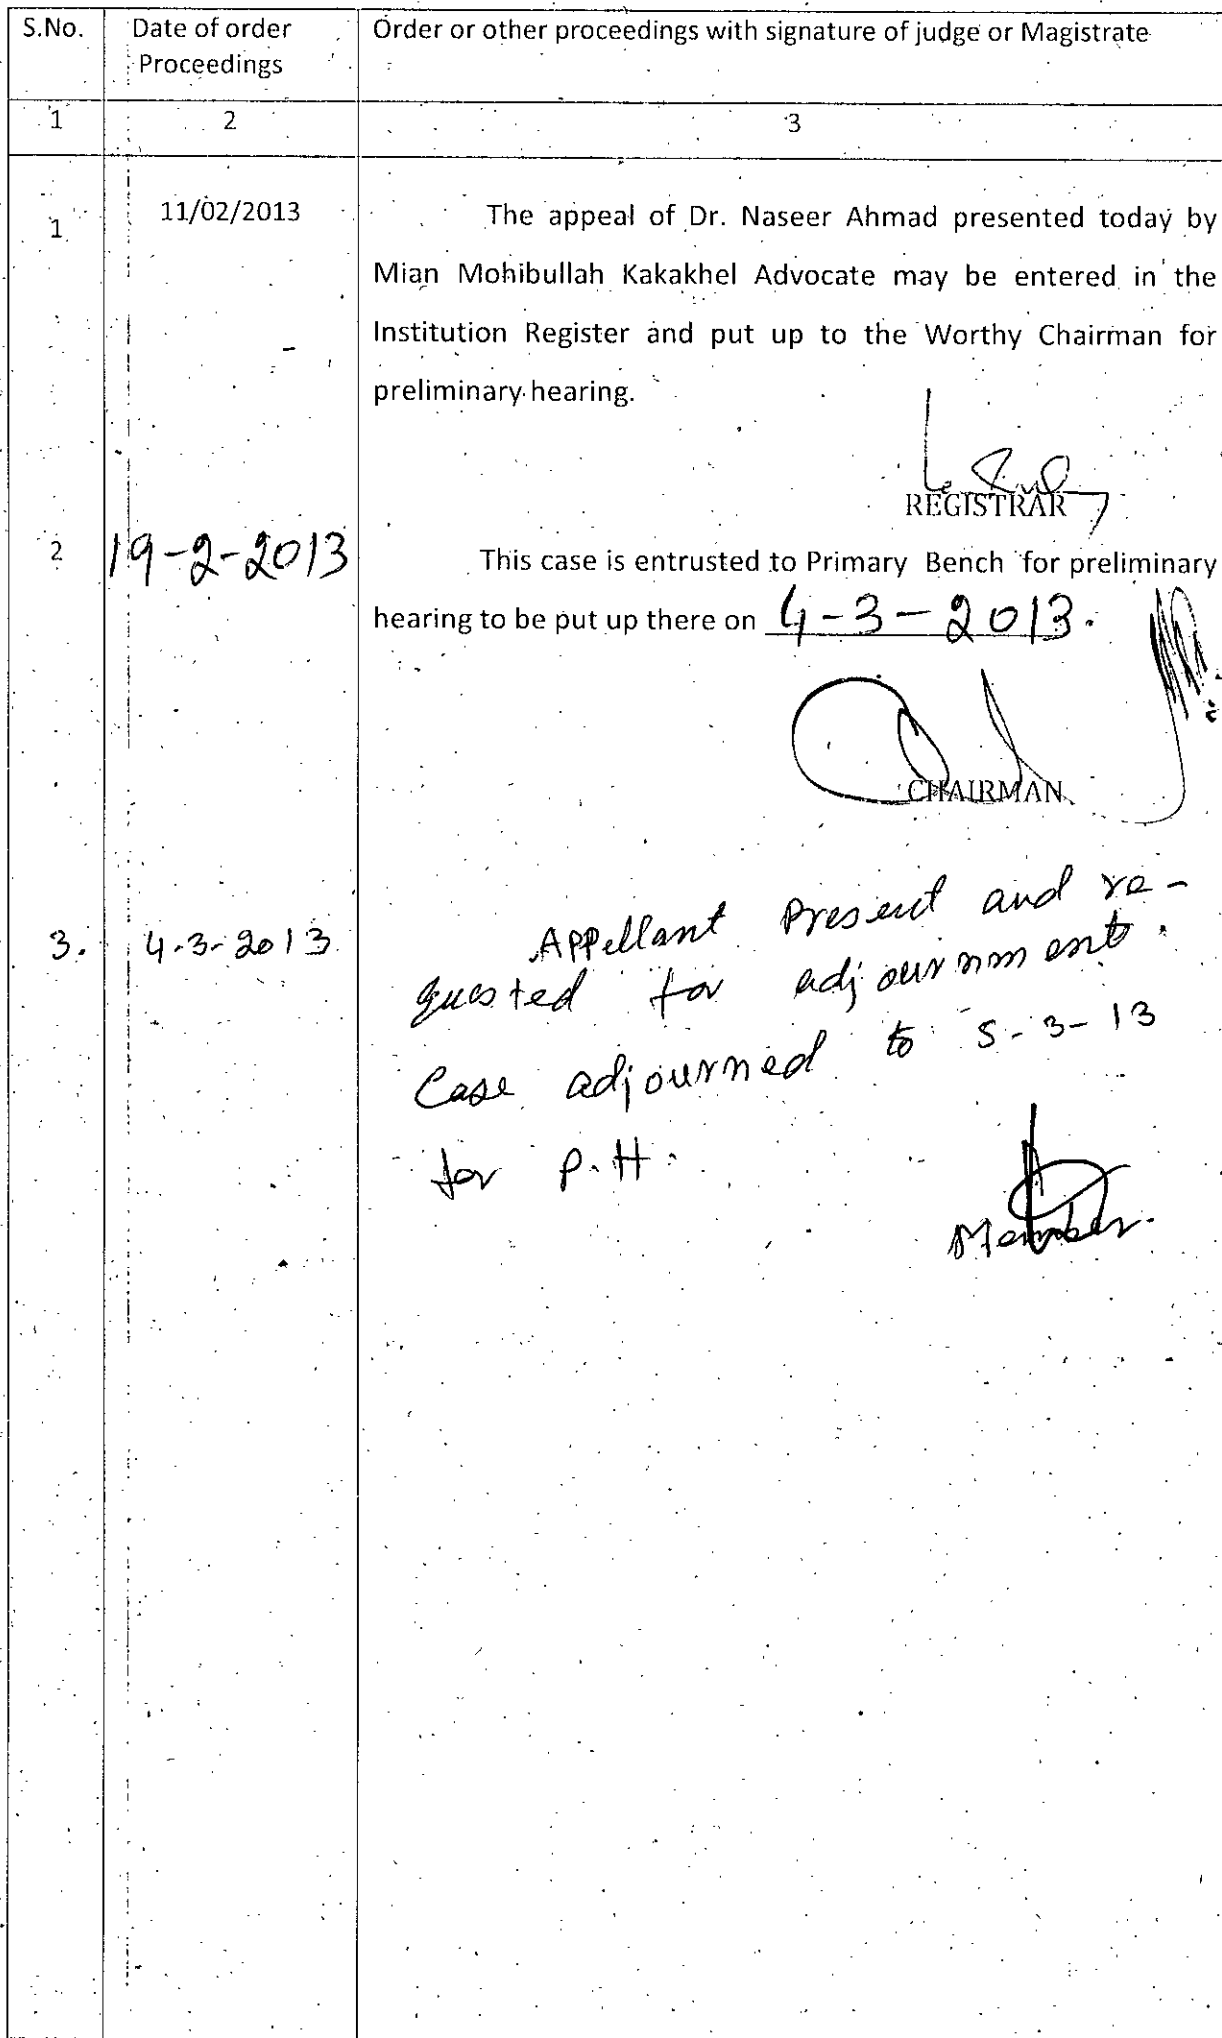 S.No. Date of order Order or other proceedings with signature of judge or Magistrate
Proceedings
1 2 3
1 11/02/2013 The appeal of Dr. Naseer Ahmad presented today by
Mian Mohibullah Kakakhel Advocate may be entered in the
Institution Register and put up to the Worthy Chairman for
preliminary hearing.
REGISTRAR
2 19-2-2013 This case is entrusted to Primary Bench for preliminary
hearing to be put up there on 4-3-2013.
CHAIRMAN
3. 4-3-2013 Appellant Present and re-
quested for adjournment.
Case adjourned to 5-3-13
for P.H.
Member.